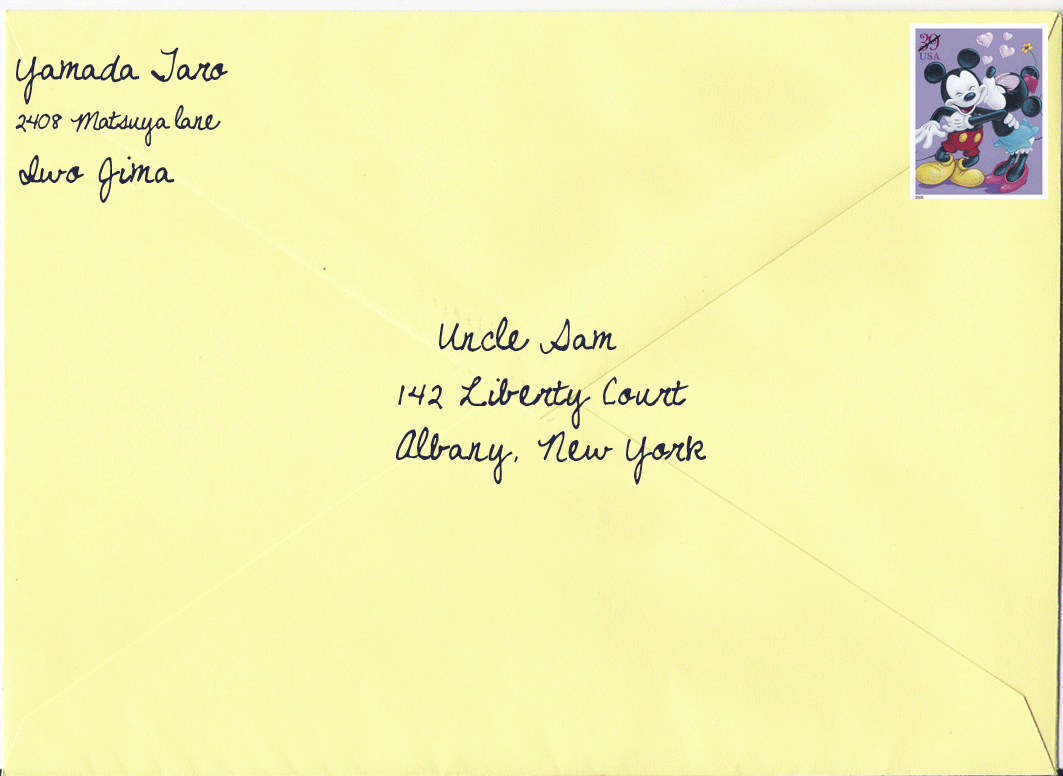 Yamada Taro
2408 Matsuya lane
Iwo Jima
39
USA
Uncle Sam
142 Liberty Court
Albany, New York